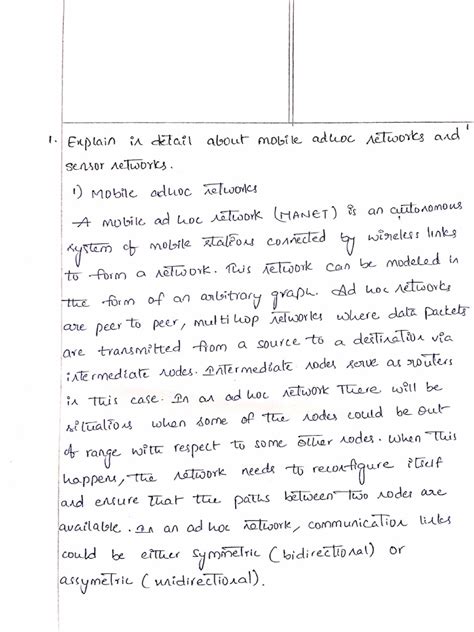 1. Explain in detail about mobile adhoc networks and
sensor networks.
1) Mobile adhoc networks
A mobile ad hoc network (MANET) is an autonomous
system of mobile stations connected by wireless links
to form a network. This network can be modeled in
the form of an arbitrary graph. Ad hoc networks
are peer to peer, multihop networks where data packets
are transmitted from a source to a destination via
intermediate nodes. Intermediate nodes serve as routers
in this case. In an ad hoc network there will be
situations when some of the nodes could be out
of range with respect to some other nodes. When this
happens, the network needs to reconfigure itself
and ensure that the paths between two nodes are
available. In an ad hoc network, communication links
could be either symmetric (bidirectional) or
assymetric (unidirectional).